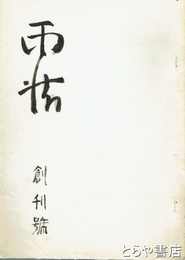 雨
創刊號
©とらや書店